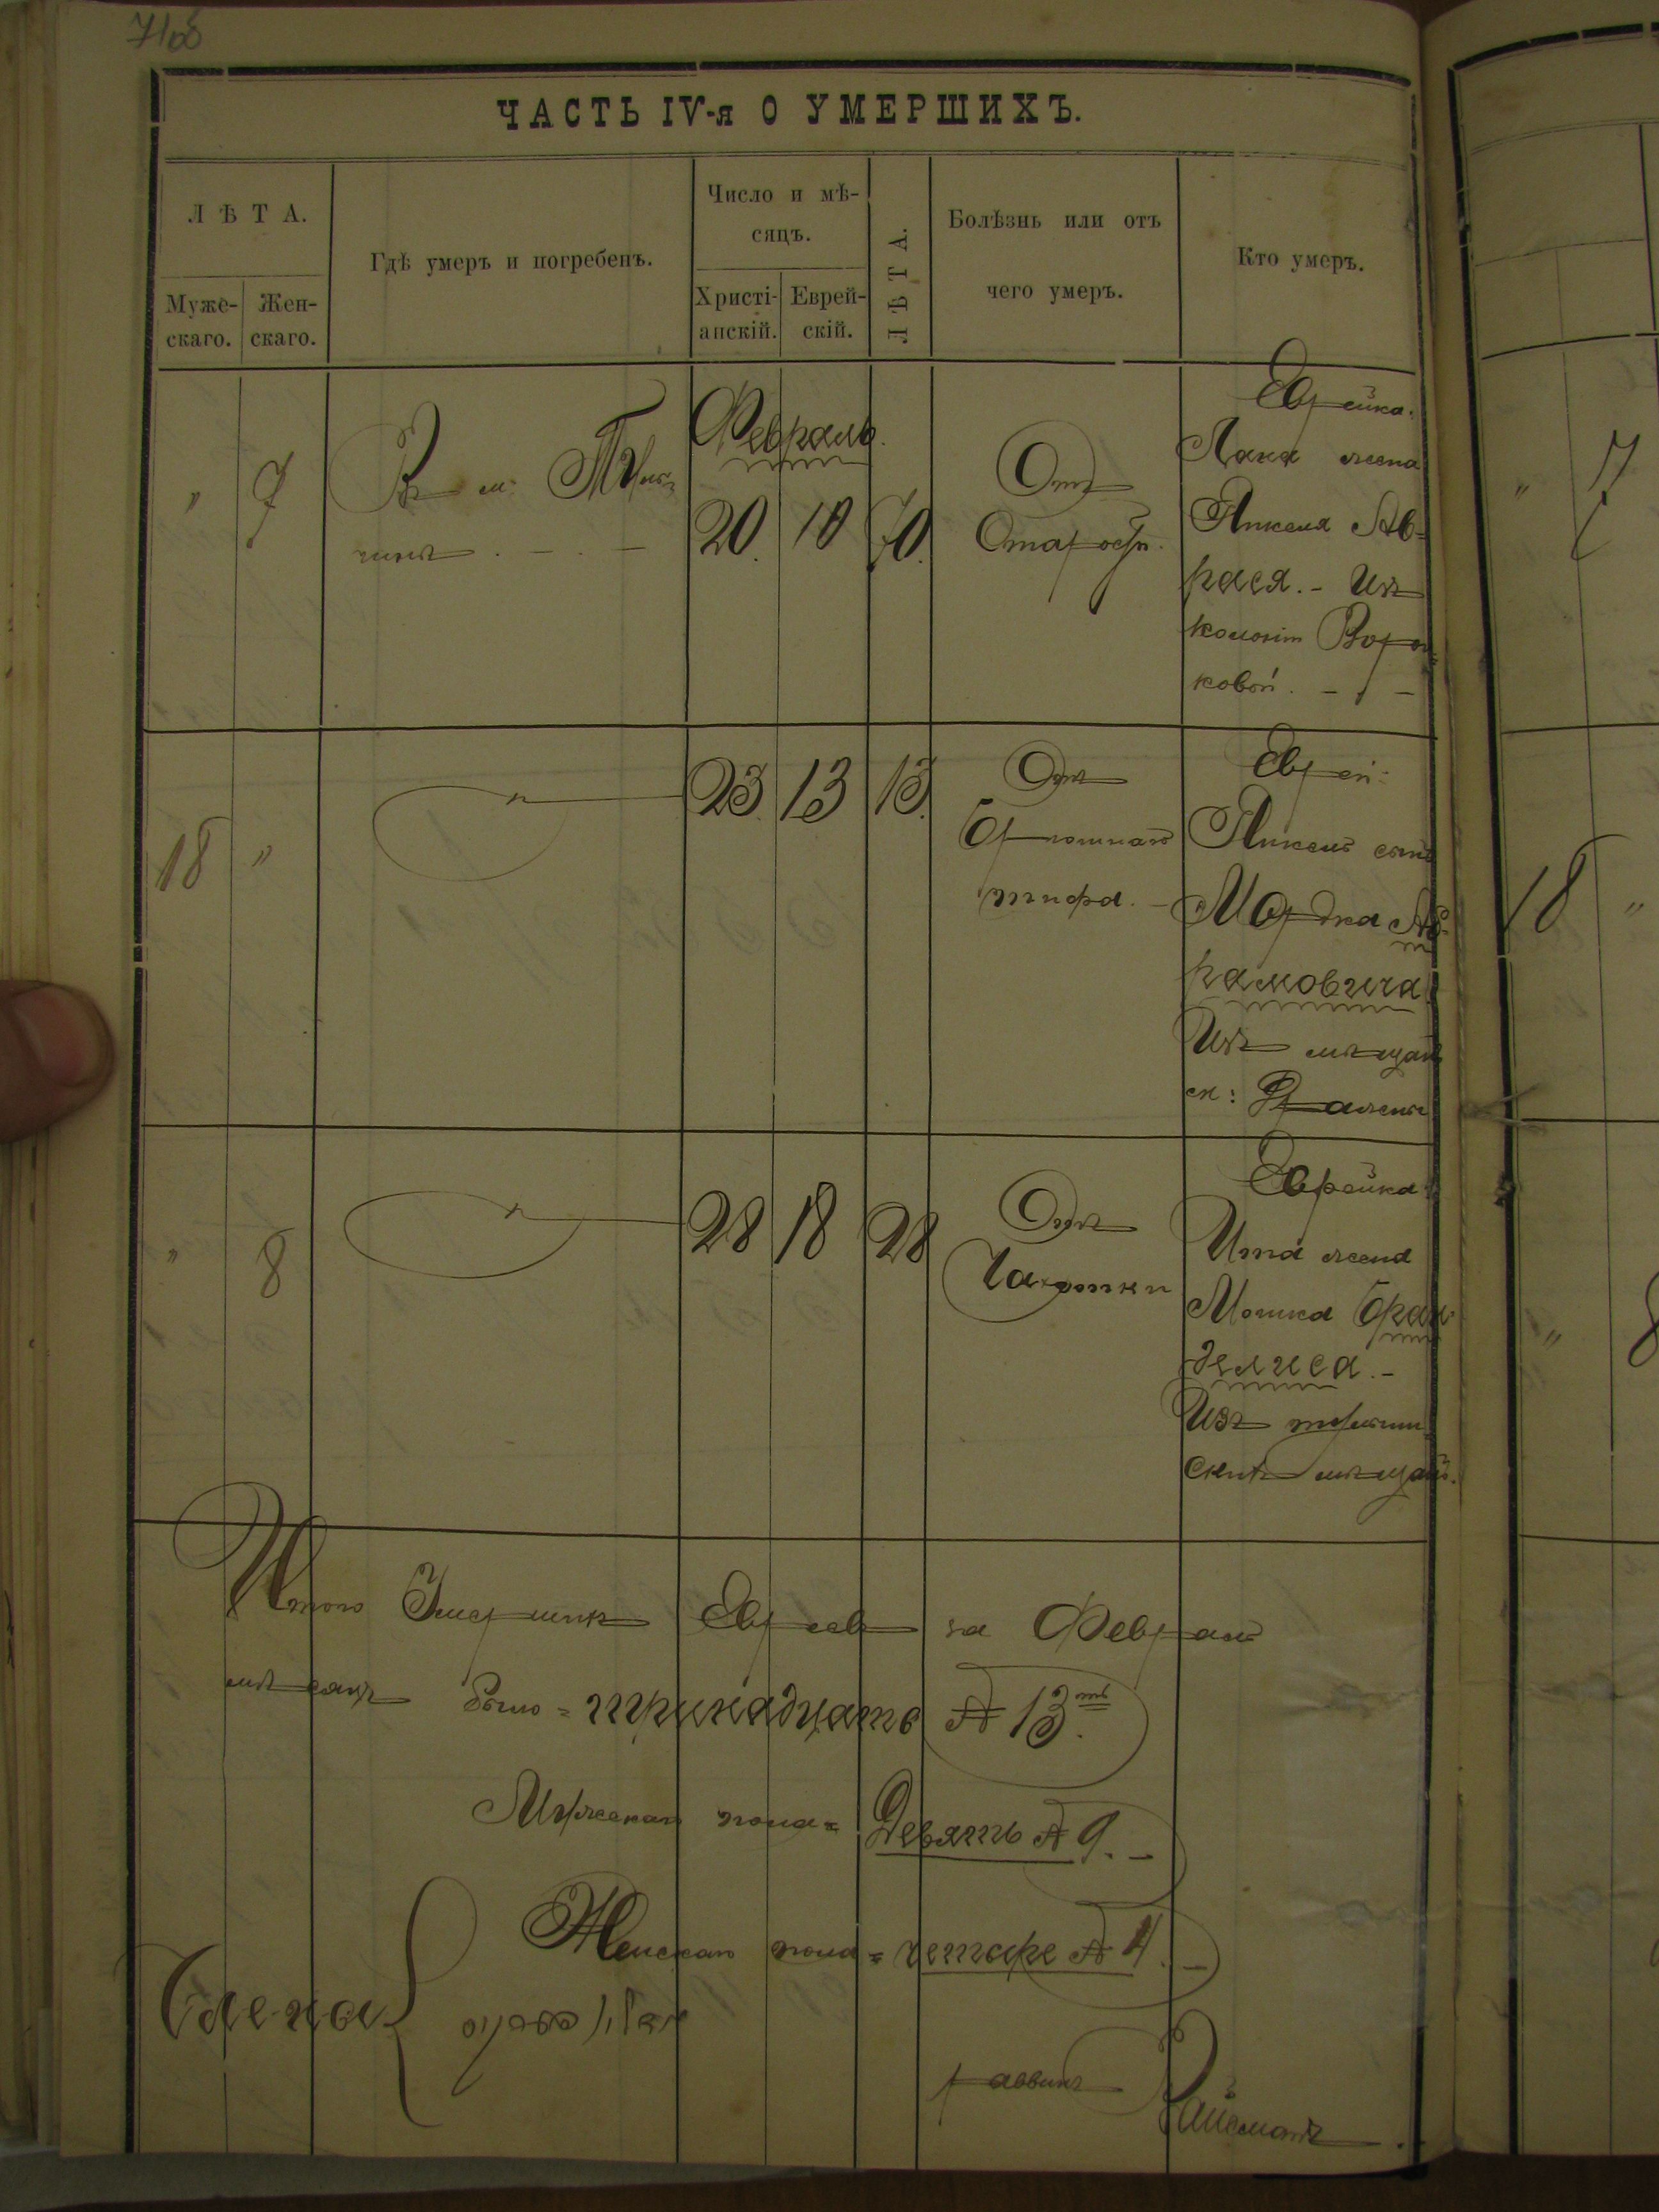 71об
ЧАСТЬ IV-я О УМЕРШИХЪ.
ЛѢТА.
Муже-
скаго.
Жен-
скаго.
Гдѣ умеръ и погребенъ.
Число и мѣ-
сяцъ.
Христі-
анскій.
Еврей-
скій.
ЛѢТА.
Болѣзнь или отъ
чего умеръ.
Кто умеръ.
" 7
Въ м.
Февраль.
20. 10 70.
Отъ
Старости.
Еврейка:
жена
Янкеля Ав-
раея. - Изъ
колоніи
ковой. -
18 "
"
23. 13 13.
Отъ
Брюшнаго
тифа. -
Еврей:
Янкель сынъ
Мордка Аб-
рамовича.
Изъ мѣщан
ск:
" 8
"
28 18 28
Отъ
Чахотки
Еврейка:
Ита жена
Мошка Бран-
делиса. -
Изъ
скихъ мѣщанъ.
Итого Умершихъ Евреевъ за Февраль
мѣсяцъ было = тринадцать № 13.ть
Мужескаго пола = Девять № 9. -
Женскаго пола = четыре № 4. -
раввинъ
7
18 "
" 8